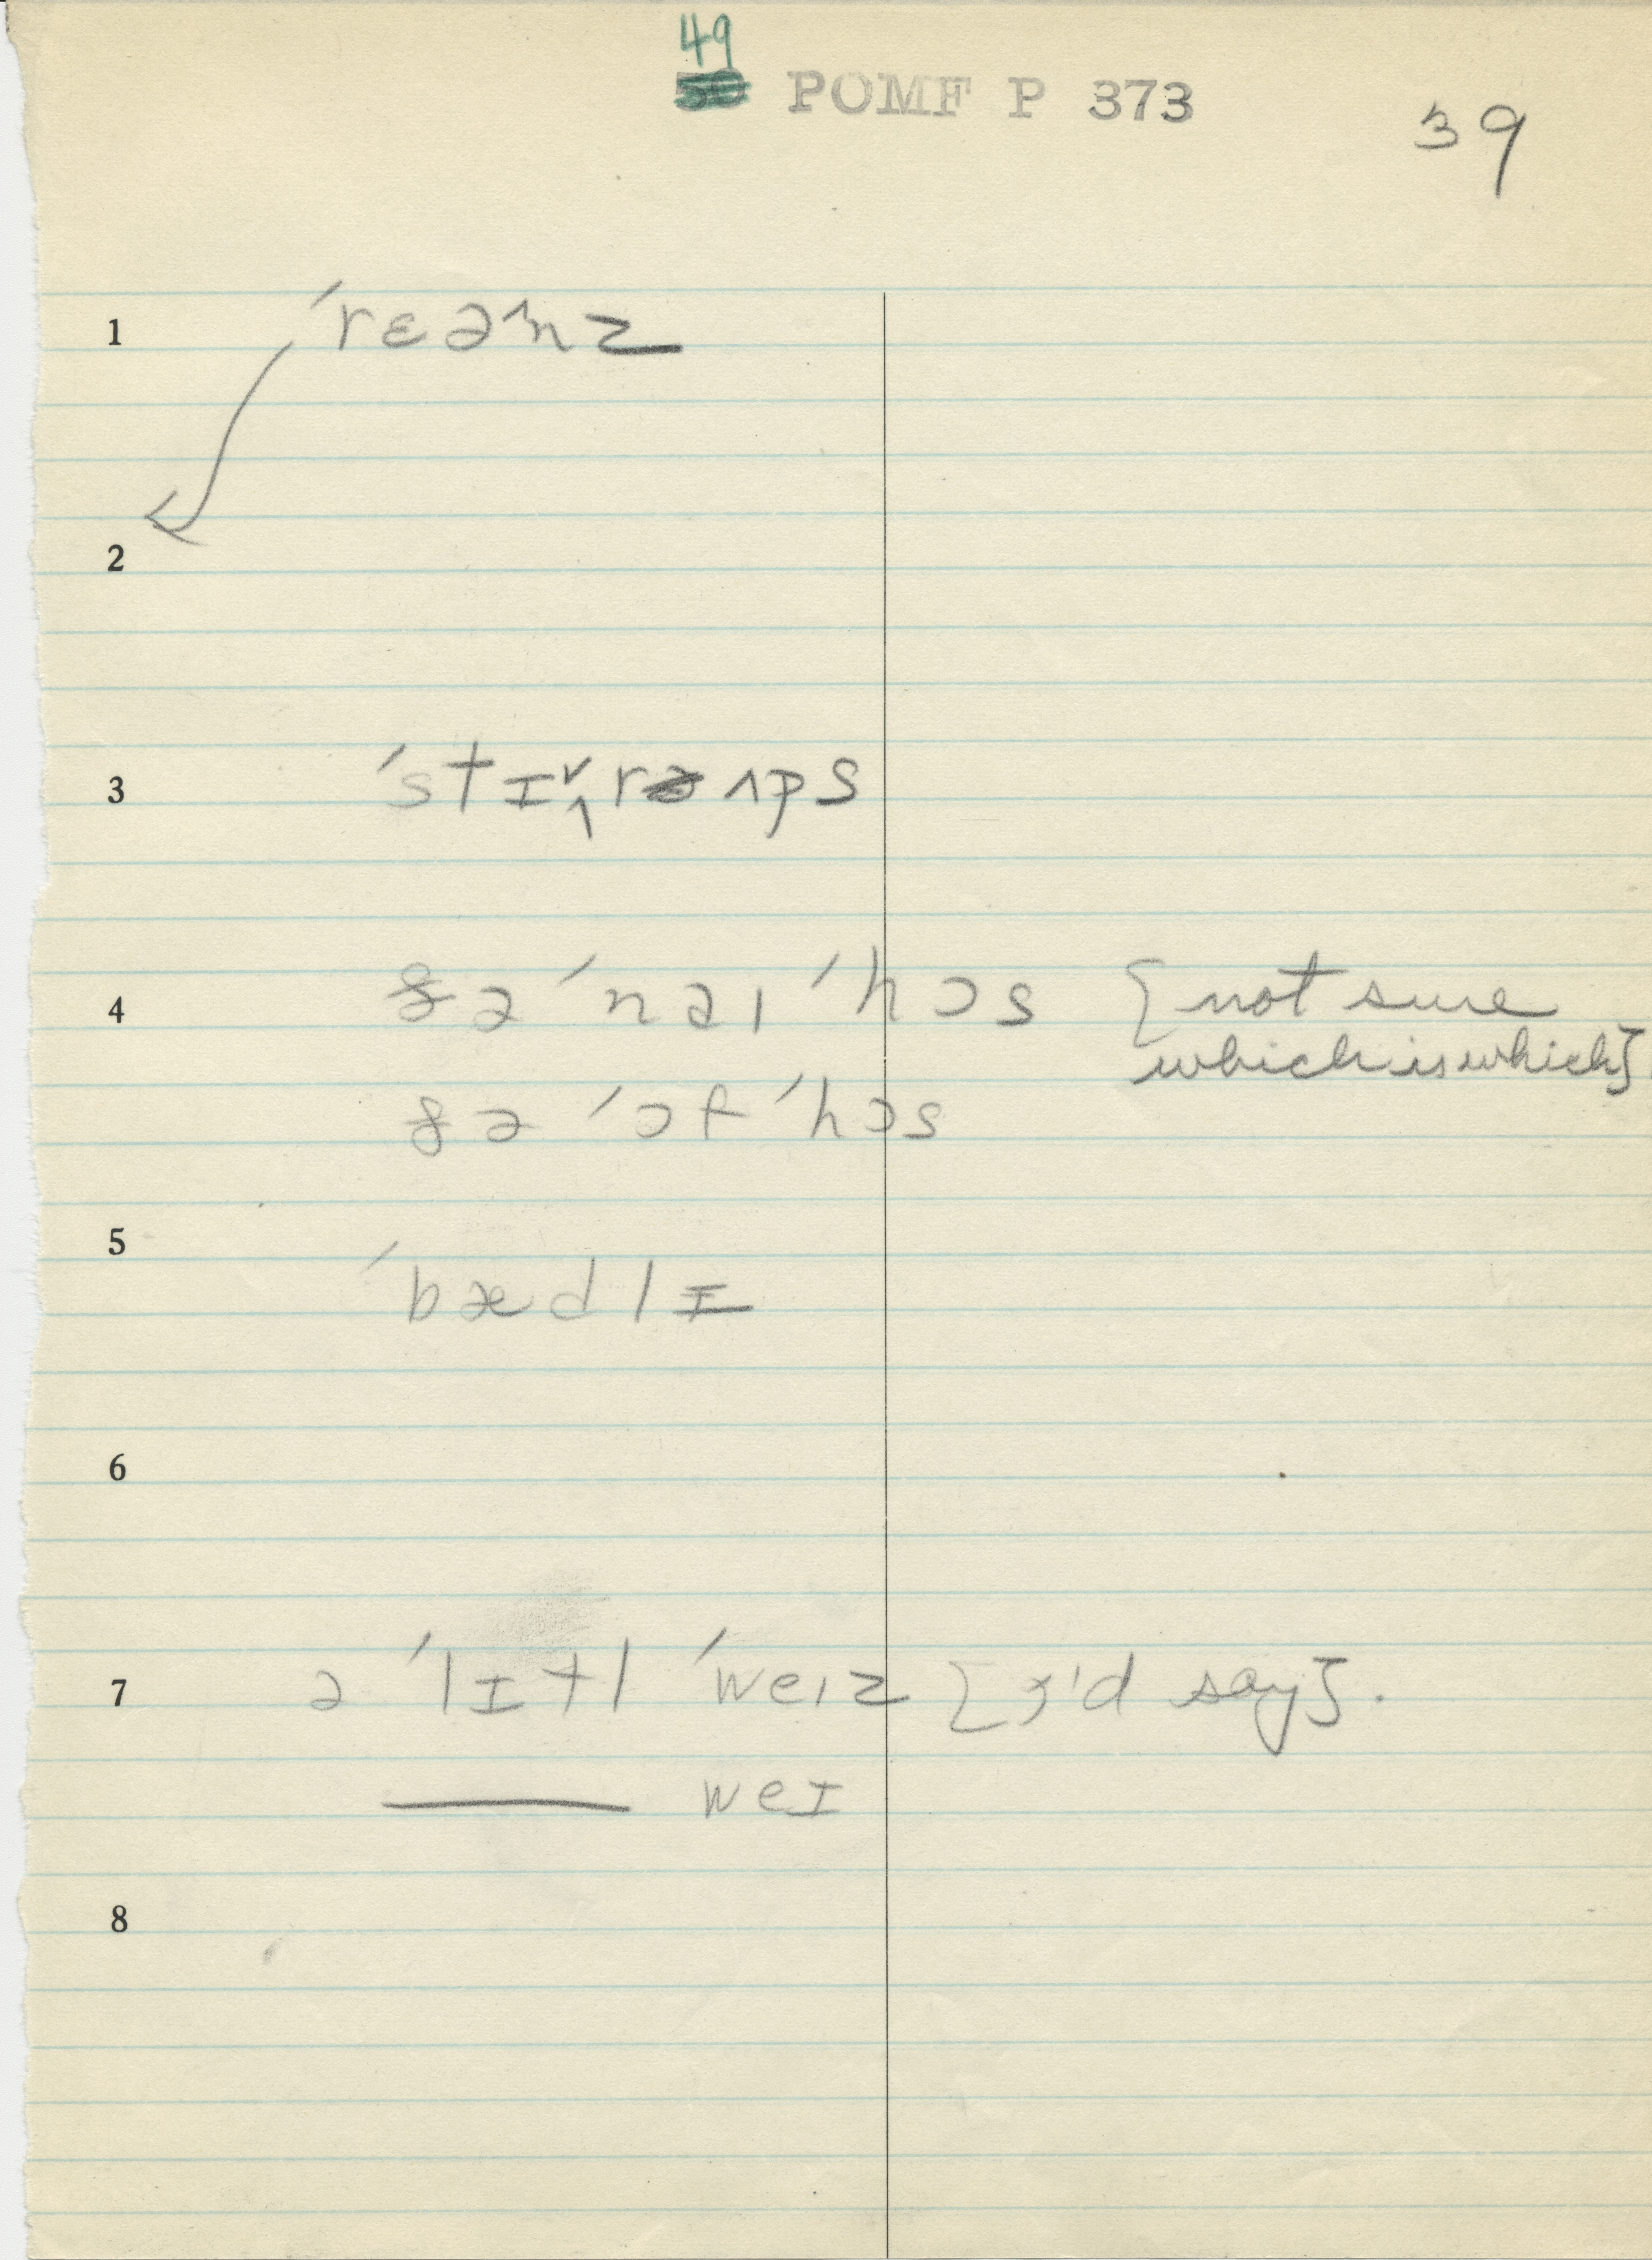 49
50 POMF P 373
39
1 ˈrɛə^nz
2
3 ˈstɪ˅^rə ʌps
4 ðə ˈnəɪ ˈhɔs {not sure
which is which}
ðə ˈɔf ˈhɔs
5 ˈbædlɪ
6
7 ə ˈlɪtl ˈweɪz {I'd say}.
—— weɪ
8